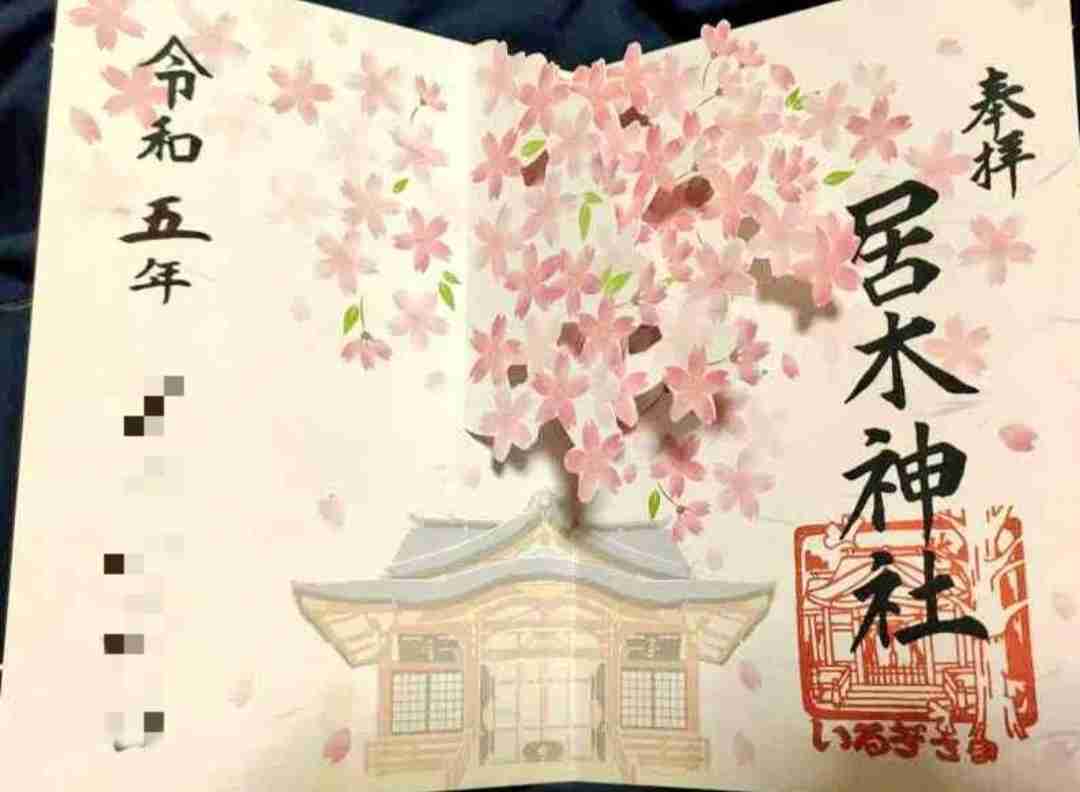 奉拝
居木神社
いるぎさま
令和五年